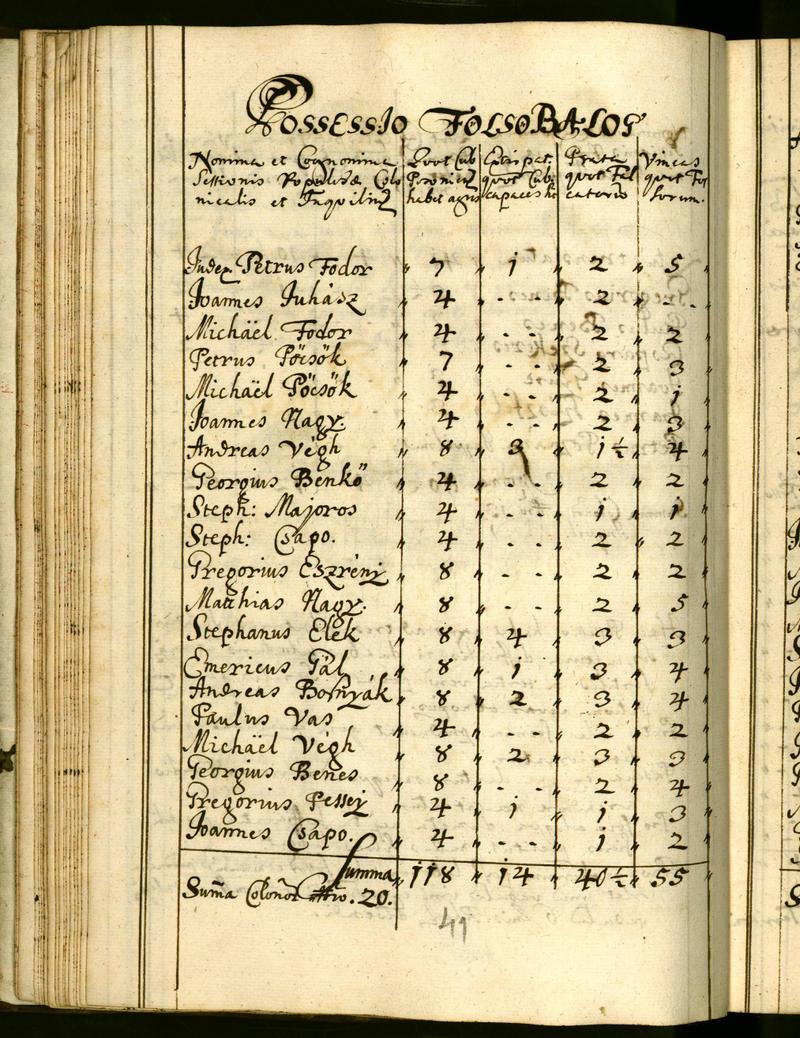 Possessio FolsoBalog
Nomina et Cognomina Quot Cub Extirpat: Prata Vineas
Sessionis Populosæ Colo Posonien quot Cub: quot Fal quot Fos
nicalis et Inquilin habet agros capaces catorio sorum.
Judex Petrus Fodor " 7 " 1 " 2 " 5 "
Joannes Juhász " 4 " - - " 2 " - - "
Michäel Fodor " 4 " - - " 2 " 2 "
Petrus Pöcsök " 7 " - - " 2 " 3 "
Michäel Pöcsök " 4 " - - " 2 " 1 "
Joannes Nagy. " 4 " - - " 2 " 3 "
Andreas Végh " 8 " 3 " 1½ " 4 "
Georgius Benkö " 4 " - - " 2 " 2 "
Steph: Majoros " 4 " - - " 1 " 1 "
Steph: Csapo. " 4 " - - " 2 " 2 "
Gregorius Eszrényi " 8 " - - " 2 " 2 "
Matthias Nagy. " 8 " - - " 2 " 5 "
Stephanus Elek " 8 " 4 " 3 " 3 "
Emericus Gál " 8 " 1 " 3 " 4 "
Andreas Bosnyák " 8 " 2 " 3 " 4 "
Paulus Vas " 4 " - - " 2 " 2 "
Michäel Végh " 8 " 2 " 3 " 3 "
Georgius Benes " 8 " - - " 2 " 4 "
Gregorius Pessey " 4 " 1 " 1 " 3 "
Joannes Csapo. " 4 " - - " 1 " 2 "
Summa " 118 " 14 " 40½ " 55 "
Sum̃a Colonor̃ . 20.
41